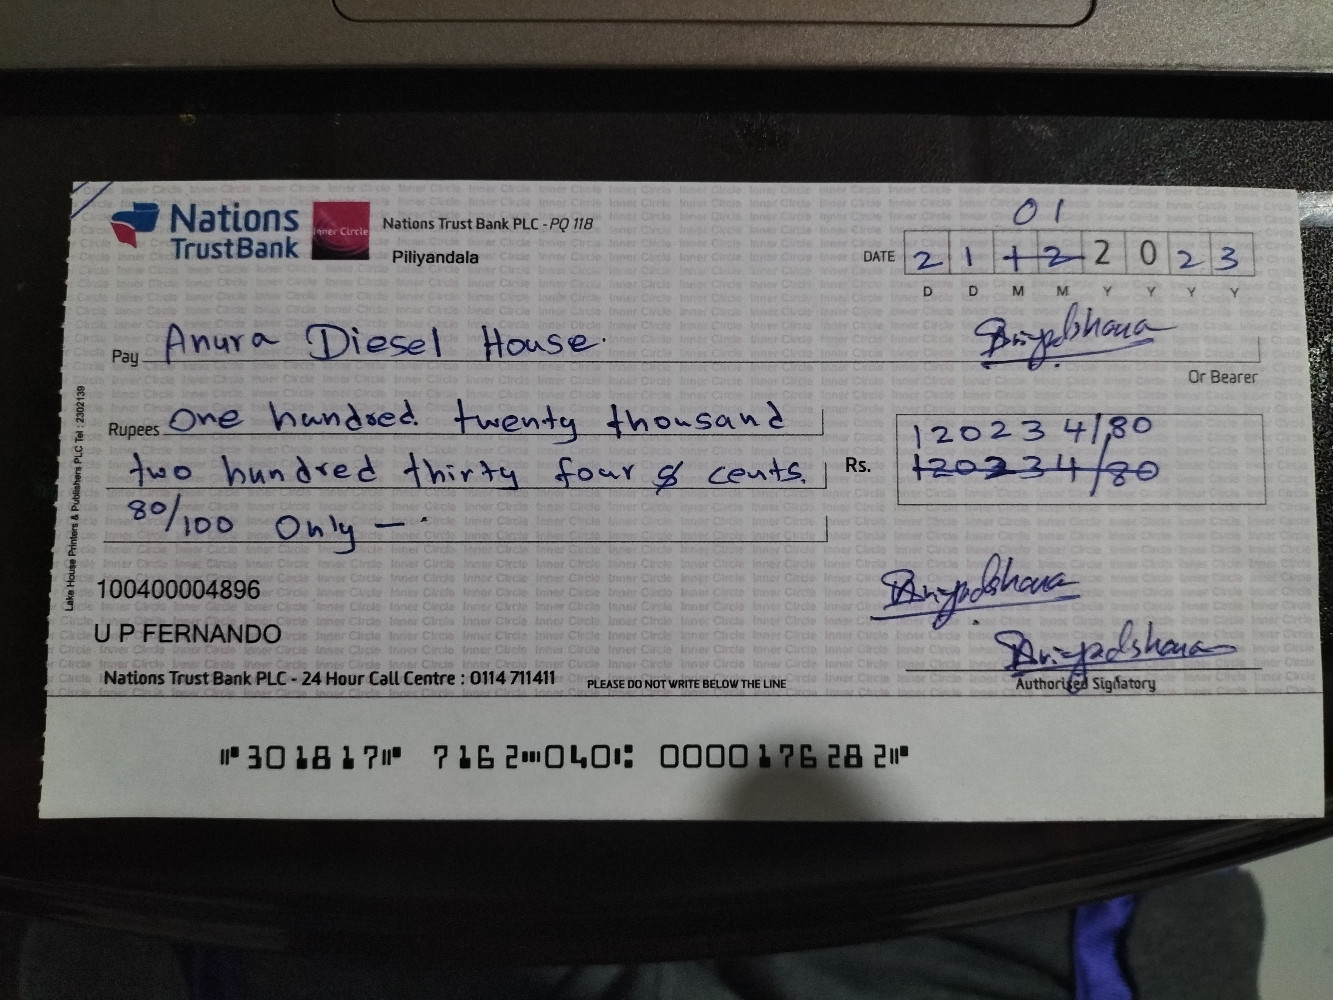 Nations
TrustBank
Inner Circle
Nations Trust Bank PLC - PQ 118
Piliyandala
01
DATE 2 1 1 2 2 0 2 3
D D M M Y Y Y Y
Pay Anura Diesel House.
Or Bearer
Rupees One hundred twenty thousand
two hundred thirty four & cents.
80/100 Only —.
Rs. 120234/80
120234/80
100400004896
U P FERNANDO
Nations Trust Bank PLC - 24 Hour Call Centre : 0114 711411
PLEASE DO NOT WRITE BELOW THE LINE
Authorised Signatory
Lake House Printers & Publishers PLC Tel : 2302139
⑈301817⑈ 7162⑉040⑆ 0000176282⑈